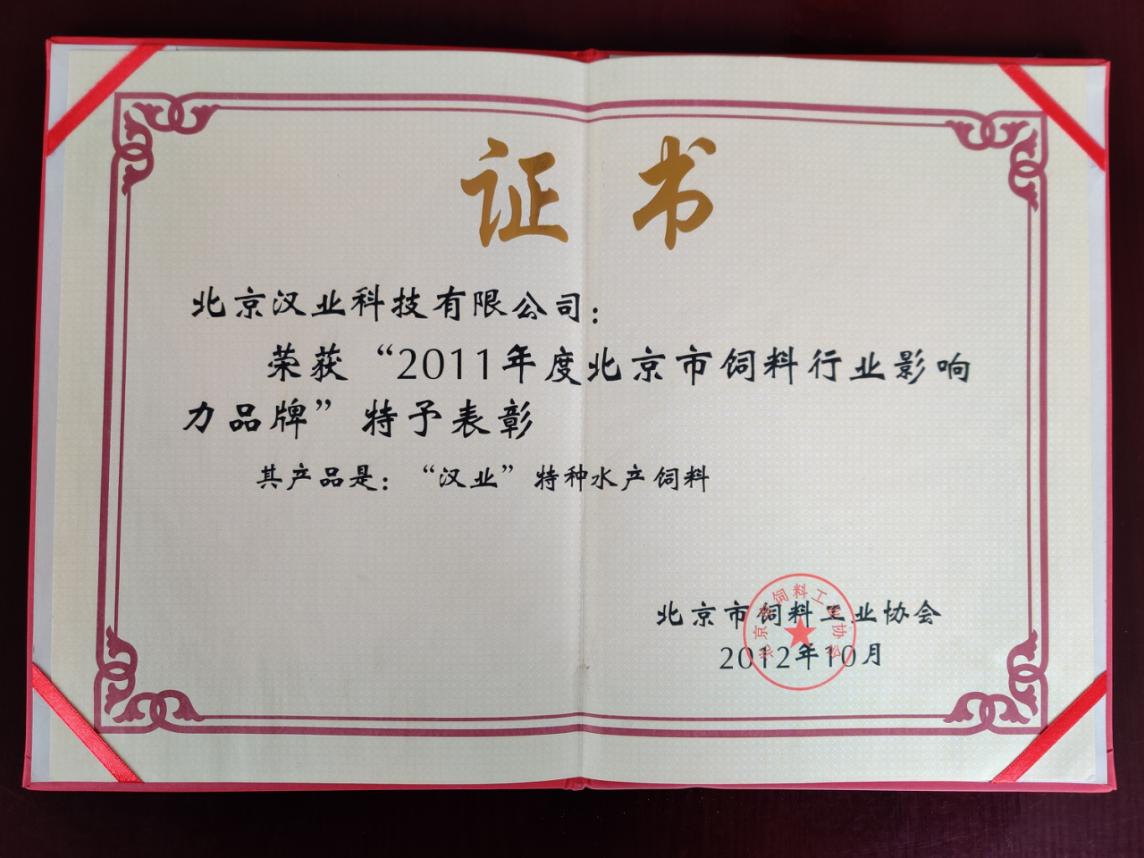 证书
北京汉业科技有限公司：
荣获“2011年度北京市饲料行业影响
力品牌”特予表彰
其产品是：“汉业”特种水产饲料
北京市饲料工业协会
2012年10月
北京市饲料工业协会